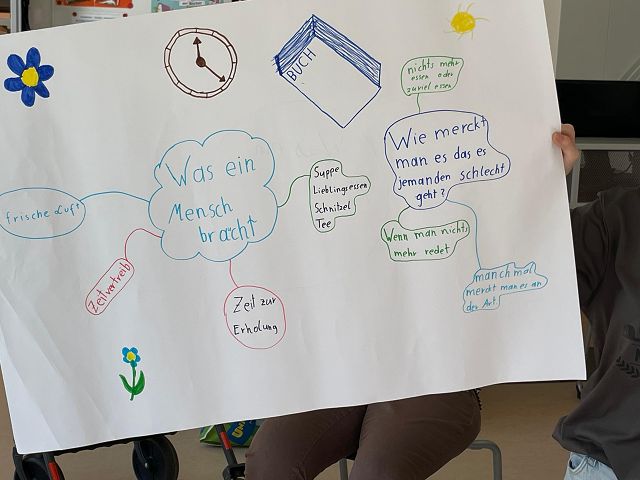 BUCH
Was ein
Mensch
bracht
frische Luft
Zeitvertreib
Zeit zur
Erholung
Suppe
Lieblingsessen
Schnitzel
Tee
Wie merckt
man es das es
jemanden schlecht
geht?
nichts mehr
essen oder
zuviel essen
Wenn man nichts
mehr redet
manchmal
merckt man es an
der Art